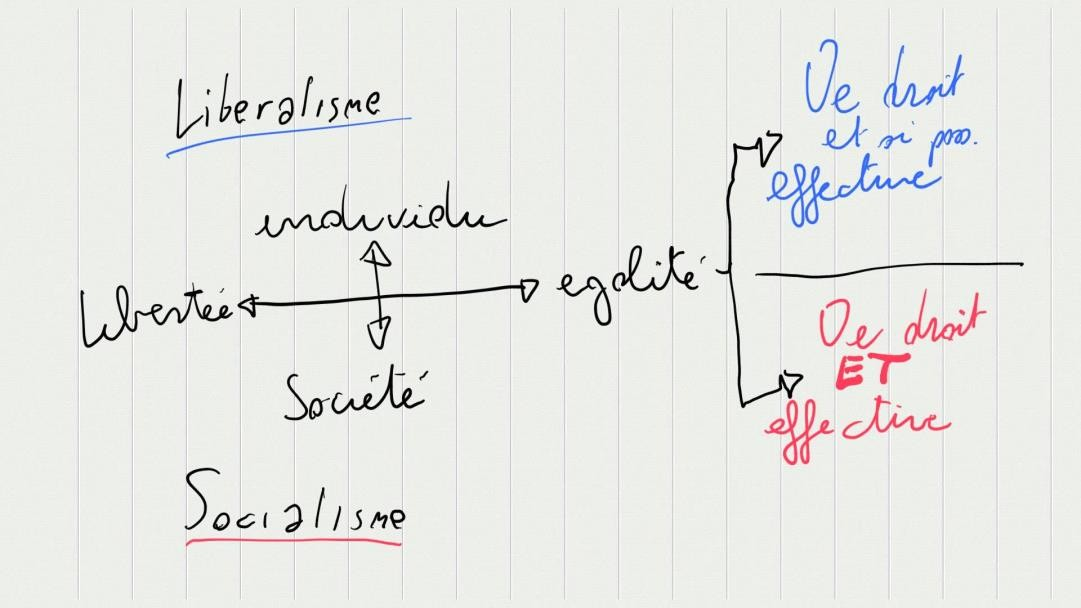 Liberalisme
individu
Libertée
egalité
Société
Socialisme
De droit
et si poss.
effective
De droit
ET
effective